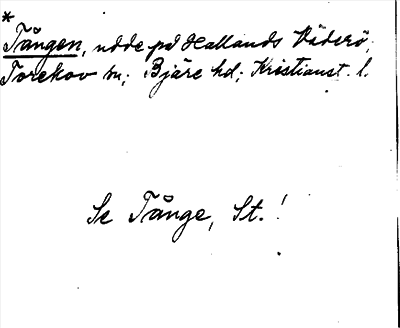 *
Tången, udde på Hallands Väderö;
Torekov sn; Bjäre hd; Kristianst. l.
Se Tånge, St.!